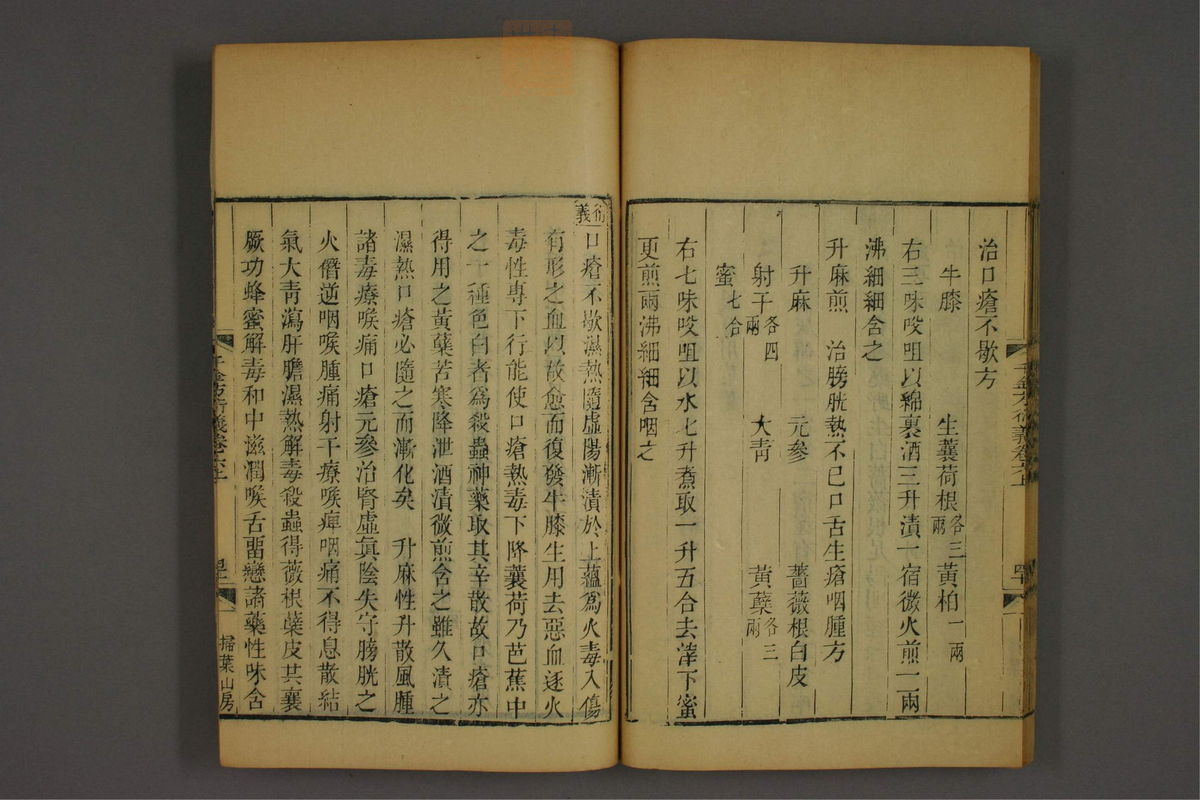 治口瘡不歇方
牛膝 生蘘荷根各三兩 黃柏一兩
右三味㕮咀以綿裹酒三升漬一宿微火煎一二兩
沸細細含之
升麻煎 治膀胱熱不已口舌生瘡咽腫方
升麻 元參 薔薇根白皮
射干各四兩 大青 黃蘗各三兩
蜜七合
右七味㕮咀以水七升煮取一升五合去滓下蜜
更煎兩沸細細含咽之
千金方衍義卷六上
衍義
口瘡不歇濕熱隨虛陽漸漬於上蘊為火毒入傷
有形之血以故愈而復發牛膝生用去惡血逐火
毒性專下行能使口瘡熱毒下降蘘荷乃芭蕉中
之一種色白者為殺蟲神藥取其辛散故口瘡亦
得用之黃蘗苦寒降泄酒漬微煎含之雖久漬之
濕熱口瘡必隨之而漸化矣 升麻性升散風腫
諸毒療喉痛口瘡元參治腎虛眞陰失守膀胱之
火僭逆咽喉腫痛射干療喉痺咽痛不得息散結
氣大青瀉肝膽濕熱解毒殺蟲得薇根蘗皮其襄
厥功蜂蜜解毒和中滋潤喉舌畱戀諸藥性味含
掃葉山房